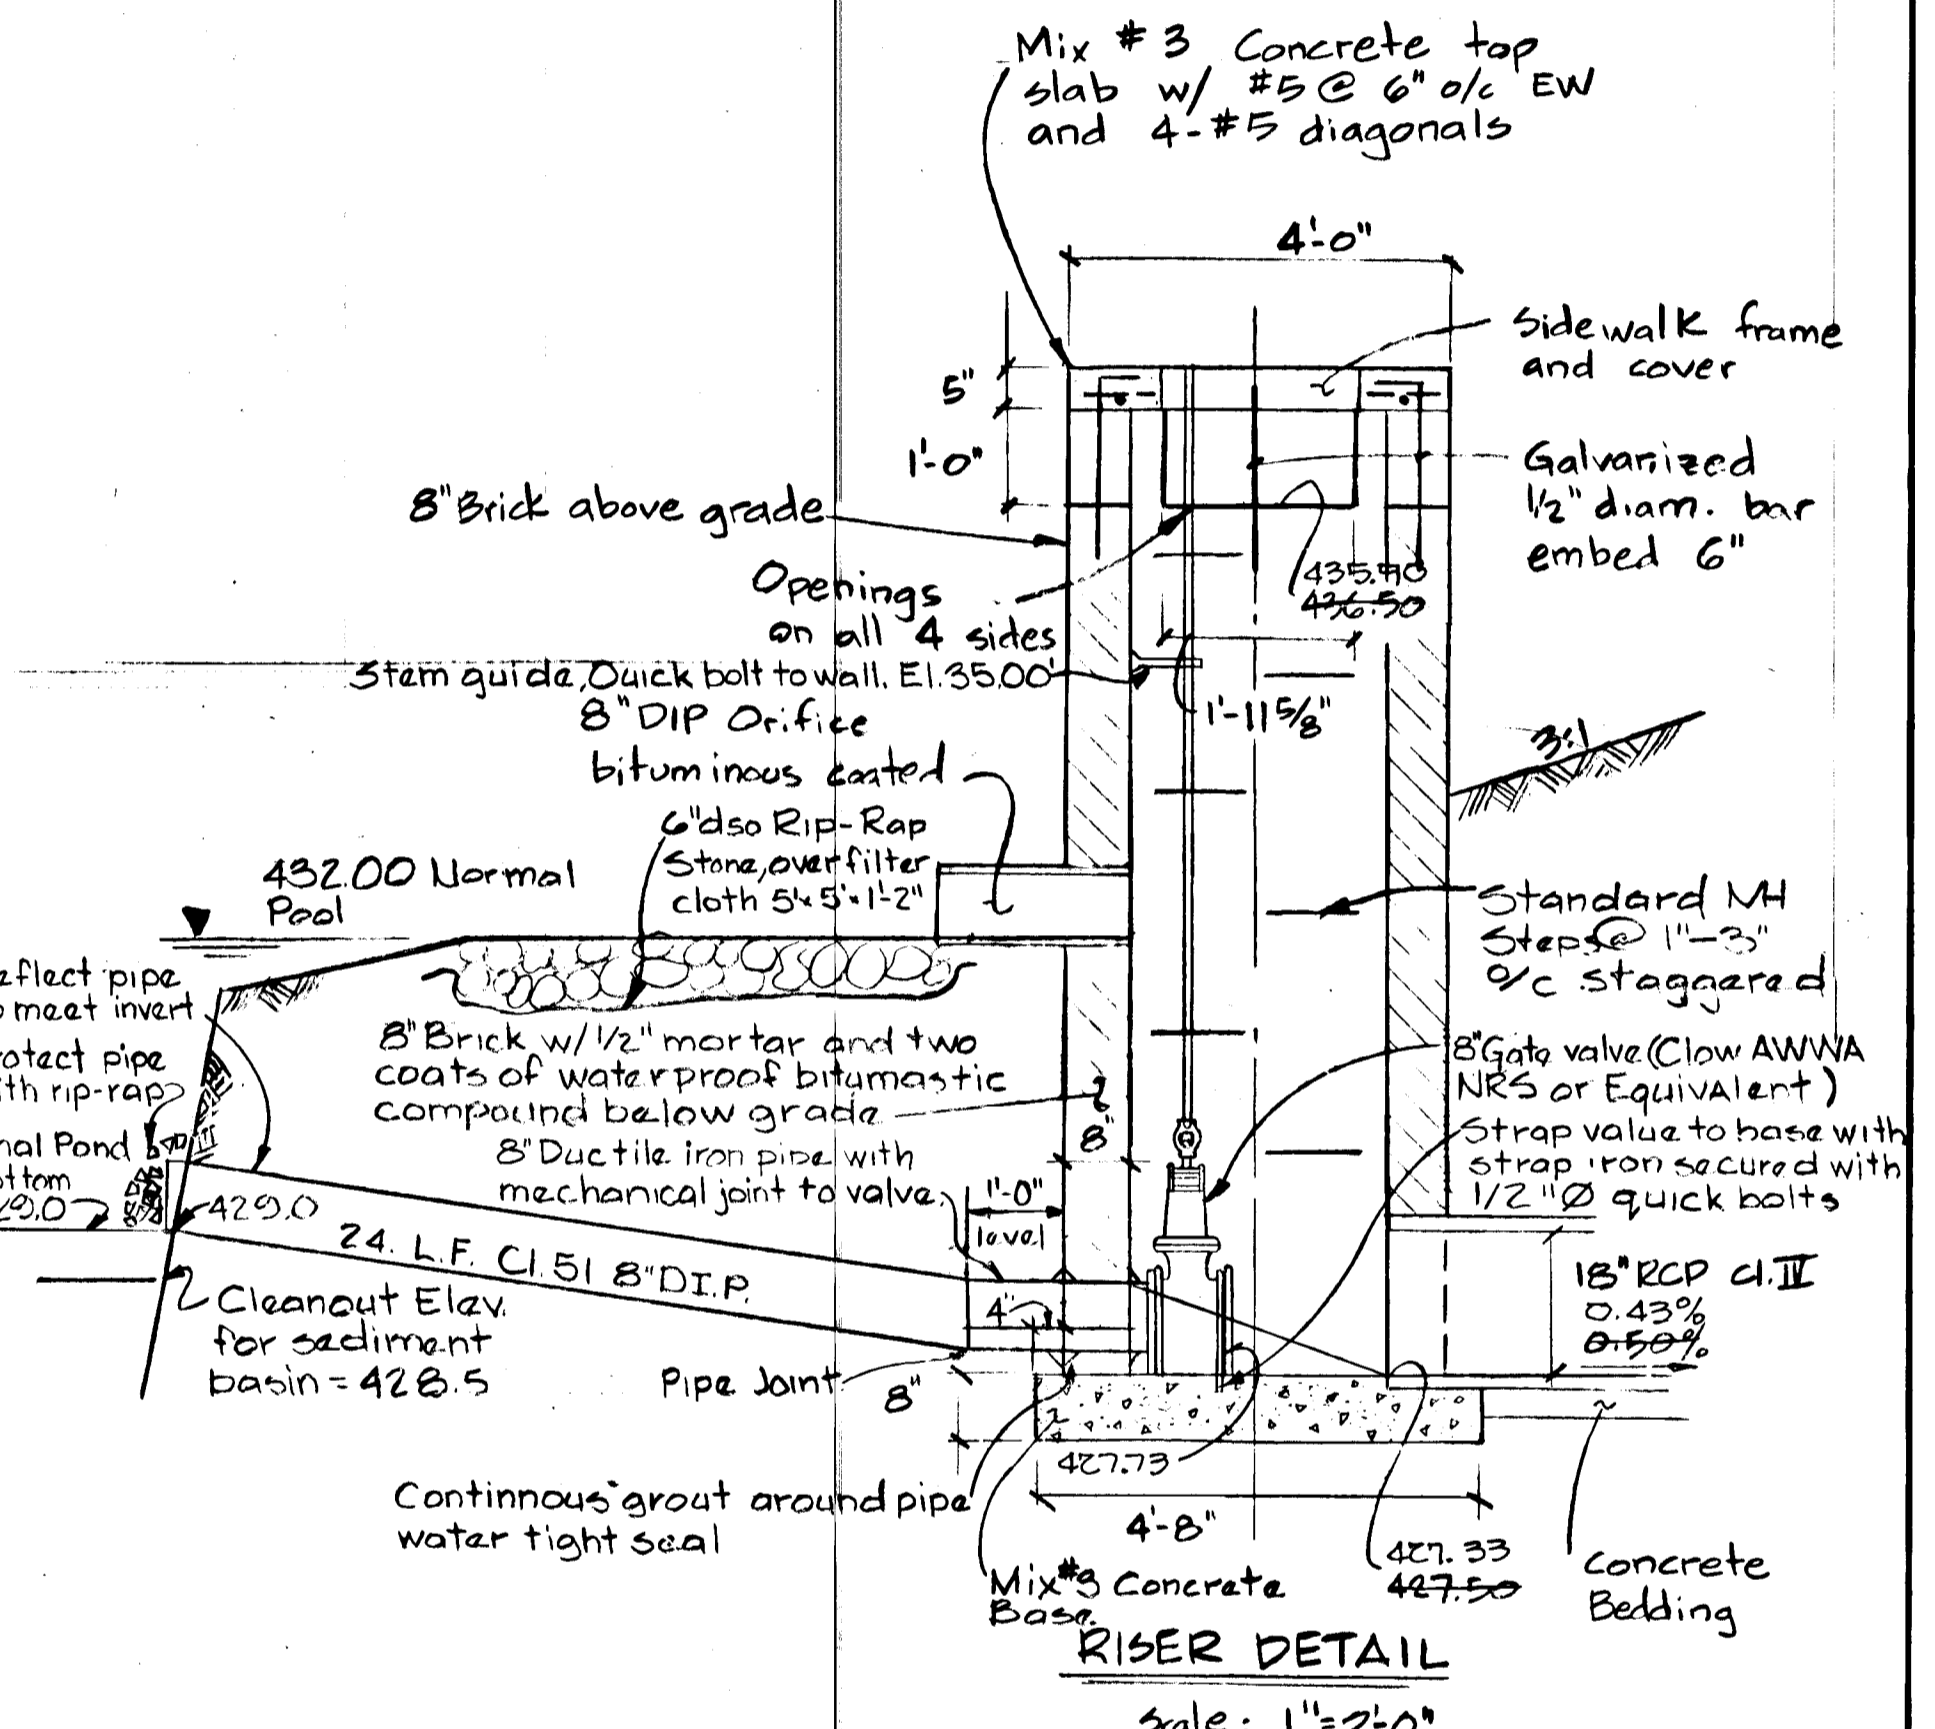 Mix #3 Concrete top
slab w/ #5 @ 6" o/c EW
and 4-#5 diagonals
4'-0"
Sidewalk frame
and cover
5"
1'-0"
Galvanized
1/2" diam. bar
embed 6"
8" Brick above grade
Openings
on all 4 sides
435.90
436.50
Stem guide, Quick bolt to wall. El.35.00'
1'-11 5/8"
8" DIP Orifice
bituminous coated
3:1
6" d50 Rip-Rap
Stone, over filter
cloth 5'x5'x1'-2"
432.00 Normal
Pool
Standard MH
Steps @ 1"-3"
o/c staggered
eflect pipe
o meet invert
otect pipe
th rip-rap
nal Pond
ttom
29.0
8" Brick w/ 1/2" mortar and two
coats of waterproof bitumastic
compound below grade
8"
8" Gate valve (Clow AWWA
NRS or Equivalent)
Strap value to base with
strap iron secured with
1/2" Ø quick bolts
8" Ductile iron pipe with
mechanical joint to valve.
1'-0"
level
429.0
24. L.F. Cl.51 8" D.I.P.
4"
18" RCP Cl. IV
0.43%
0.50%
Cleanout Elev.
for sediment
basin = 428.5
Pipe Joint
8"
427.73
Continnous grout around pipe
water tight seal
4'-8"
427.33
427.50
Mix #3 Concrete
Base.
Concrete
Bedding
RISER DETAIL
Scale: 1"=2'-0"